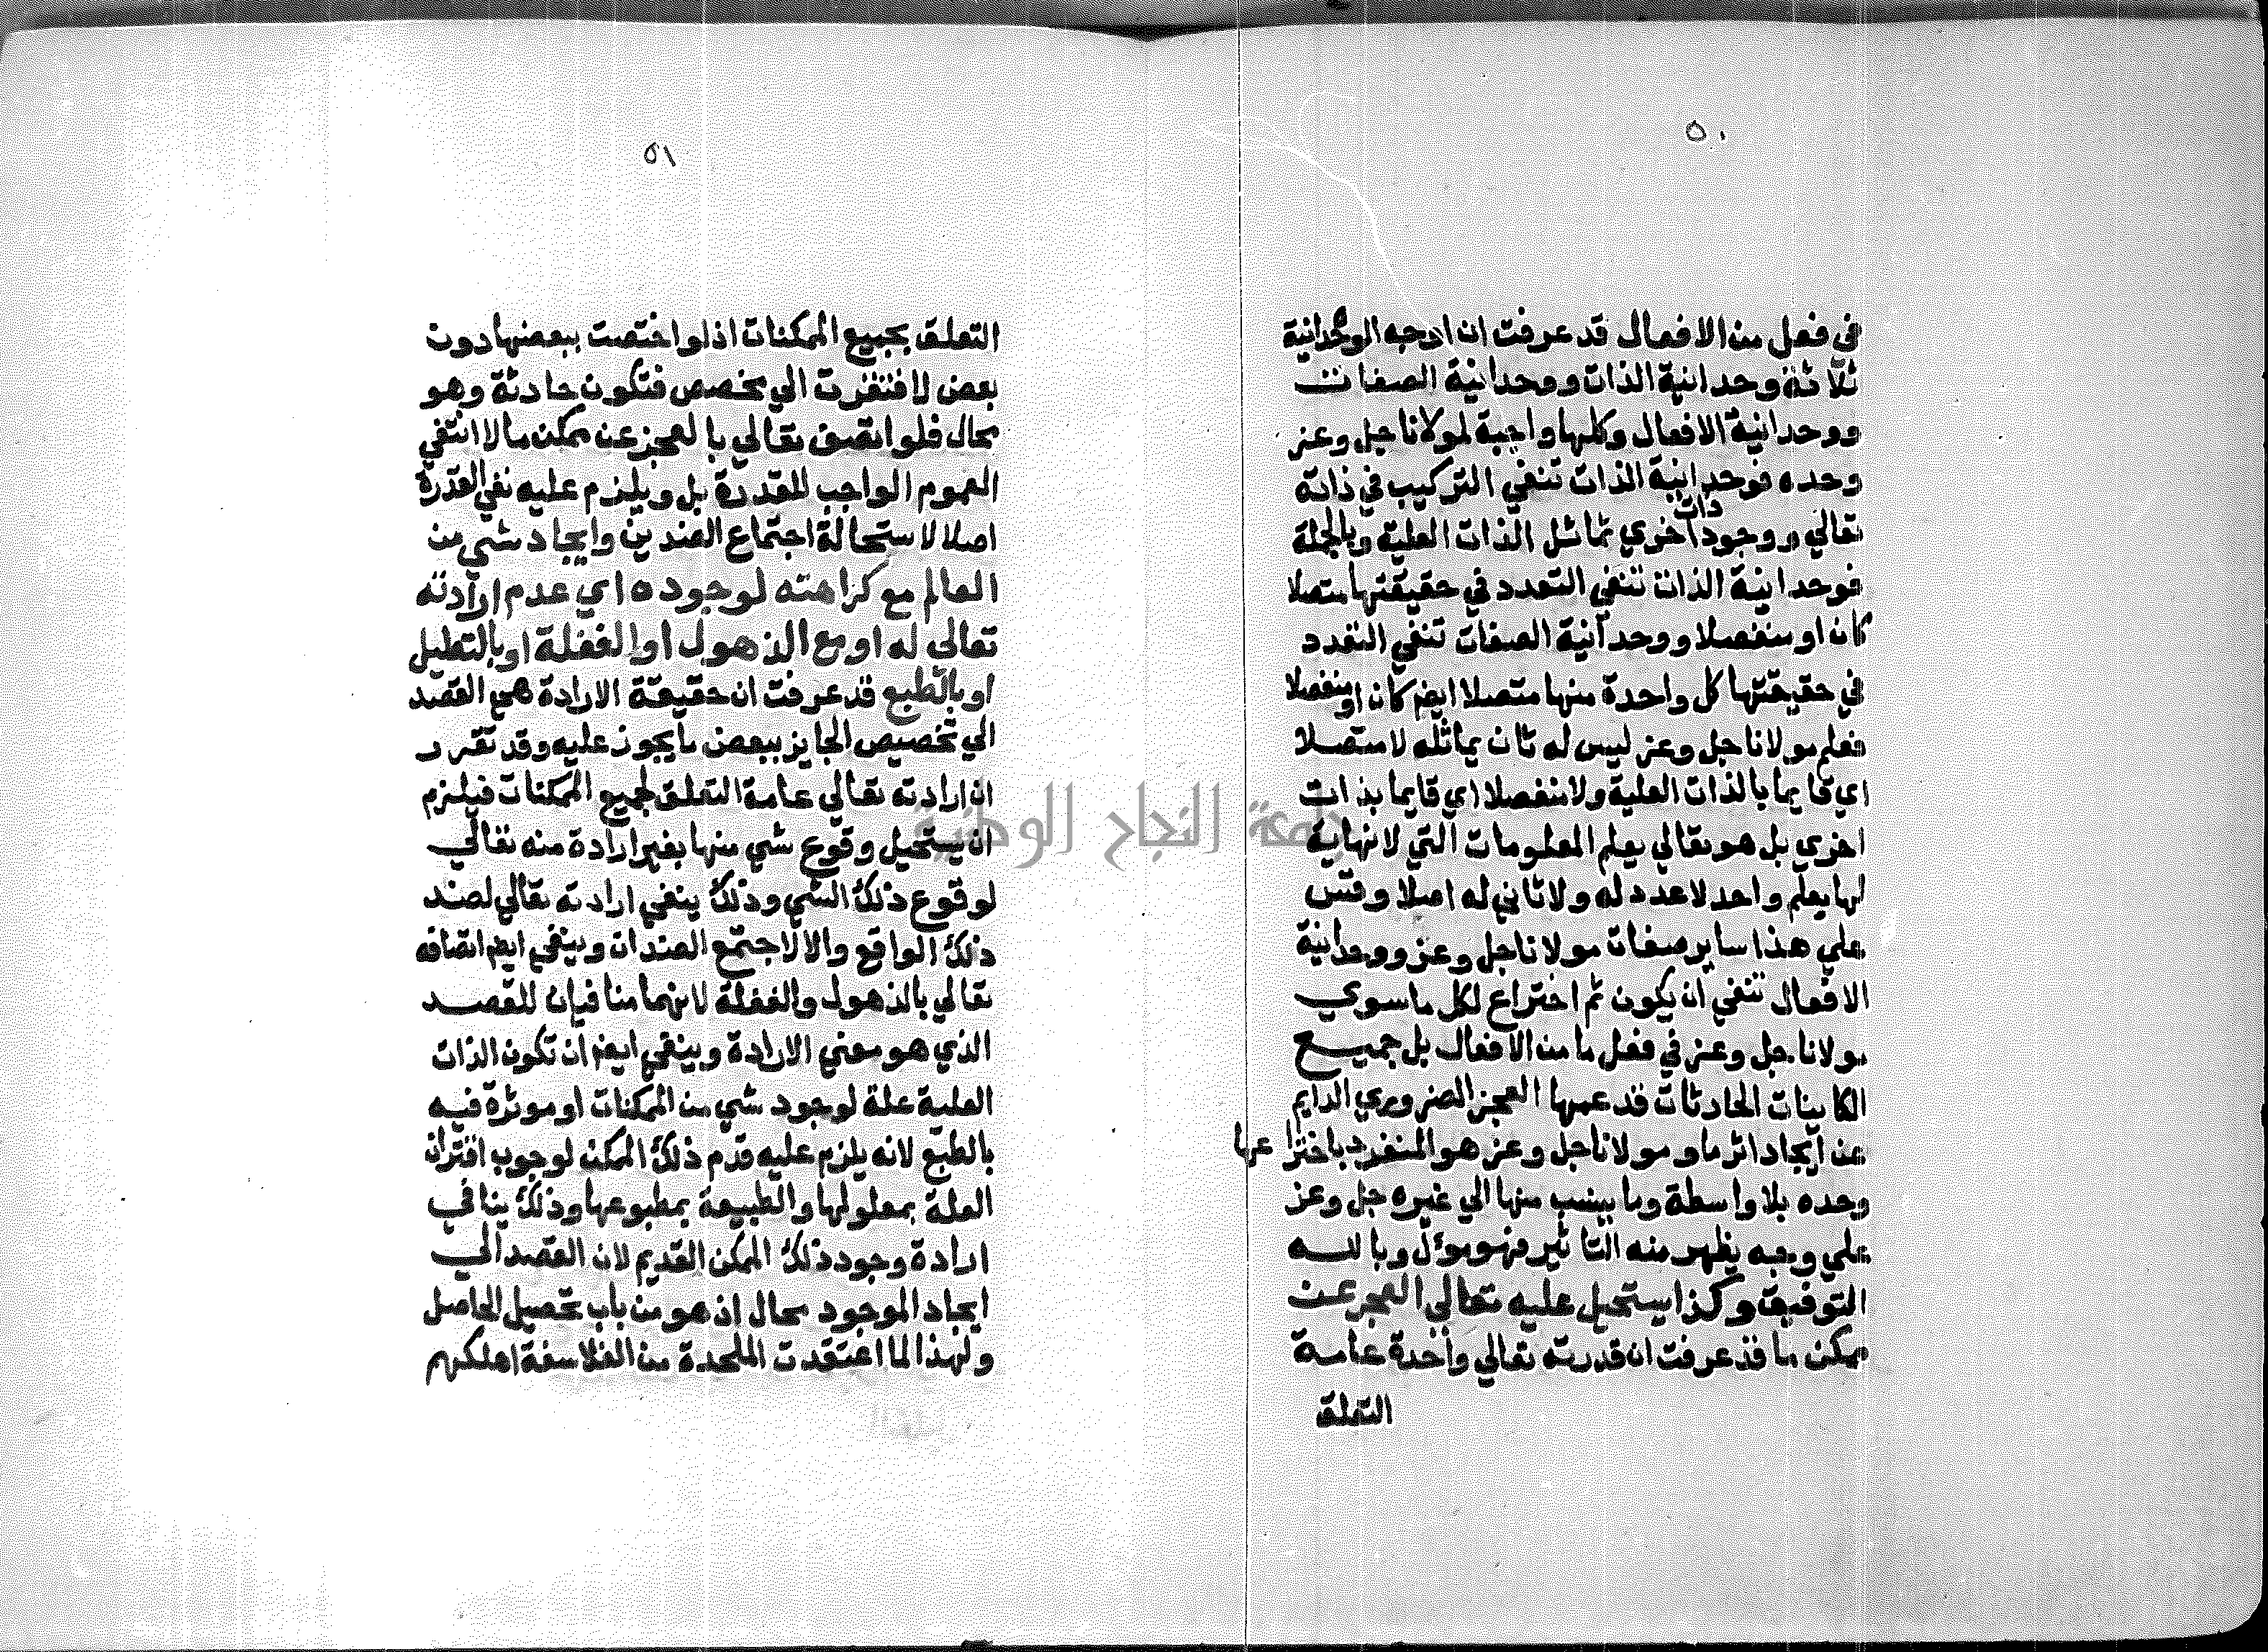 ٥٠
في فعل من الافعال قد عرفت ان اوجه الوحدانية
ثلاثة وحدانية الذات ووحدانية الصفات
ووحدانية الافعال وكلها واجبة لمولانا جل وعز
وحده فوحدانية الذات تنفي التركيب في ذاته
تعالي ووجود ذات اخري تماثل الذات العلية وبالجلة
فوحدانية الذات تنفي التعدد في حقيقتها متصلا
كان او منفصلا ووحدانية الصفات تنفي التعدد
في حقيقتها كل واحدة منها متصلا ايضم كان او منفصلا
فعلم مولانا جل وعز ليس له ثان يماثله لا متصلا
اي قايما بالذات العلية ولا منفصلا اي قايما بذات
اخري بل هو تعالي يعلم المعلومات التي لا نهاية
لها بعلم واحد لا عدد له ولا ثاني له اصلا وقس
علي هذا ساير صفات مولانا جل وعز ووحدانية
الافعال تنفي ان يكون ثم اختراع لكل ما سوي
مولانا جل وعز في فعل ما من الافعال بل جميع
الكاينات الحادثات قد عمها العجز الضروري الدايم
عن ايجاد اثر ما ومولانا جل وعز هو المنفرد باختراعها
وحده بلا واسطة وما ينسب منها الي غيره جل وعز
علي وجه يظهر منه التاثير فهو موءل وبالله
التوفيق وكذا يستحيل عليه تعالى العجز عن
ممكن ما قد عرفت ان قدرته تعالي واحدة عامة
التعلق
٥١
التعلق بجميع الممكنات اذ لو اختصت ببعضها دون
بعض لافتقرت الي مخصص فتكون حادثة وهو
محال فلو اتصف تعالي بالعجز عن ممكن ما لانتفي
العموم الواجب للقدرة بل ويلزم عليه نفي القدرة
اصلا لاستحالة اجتماع الضدين وايجاد شي من
العالم مع كراهته لوجوده اي عدم ارادته
تعالى له او مع الذهول او الغفلة او بالتعليل
او بالطبع قد عرفت ان حقيقة الارادة هي القصد
الي تخصيص الجايز ببعض ما يجوز عليه وقد تقرر
ان ارادته تعالي عامة التعلق لجميع الممكنات فيلزم
ان يستحيل وقوع شي منها بغير ارادة منه تعالي
لوقوع ذلك الشي وذلك ينفي ارادته تعالي لضد
ذلك الواقع والا لاجتمع الضدان وينفي ايضم اتصافه
تعالي بالذهول والغفلة لانهما منافيان للقصد
الذي هو معني الارادة وينفي ايضم ان تكون الذات
العلية علة لوجود شي من الممكنات او موثرة فيه
بالطبع لانه يلزم عليه قدم ذلك الممكن لوجوب اقتران
العلة بمعلولها والطبيعة بمطبوعها وذلك ينافي
ارادة وجود ذلك الممكن القديم لان القصد الي
ايجاد الموجود محال اذ هو من باب تحصيل الحاصل
ولهذا لما اعتقدت الملحدة من الفلاسفة اهلكهم
جامعة النجاح الوطنية